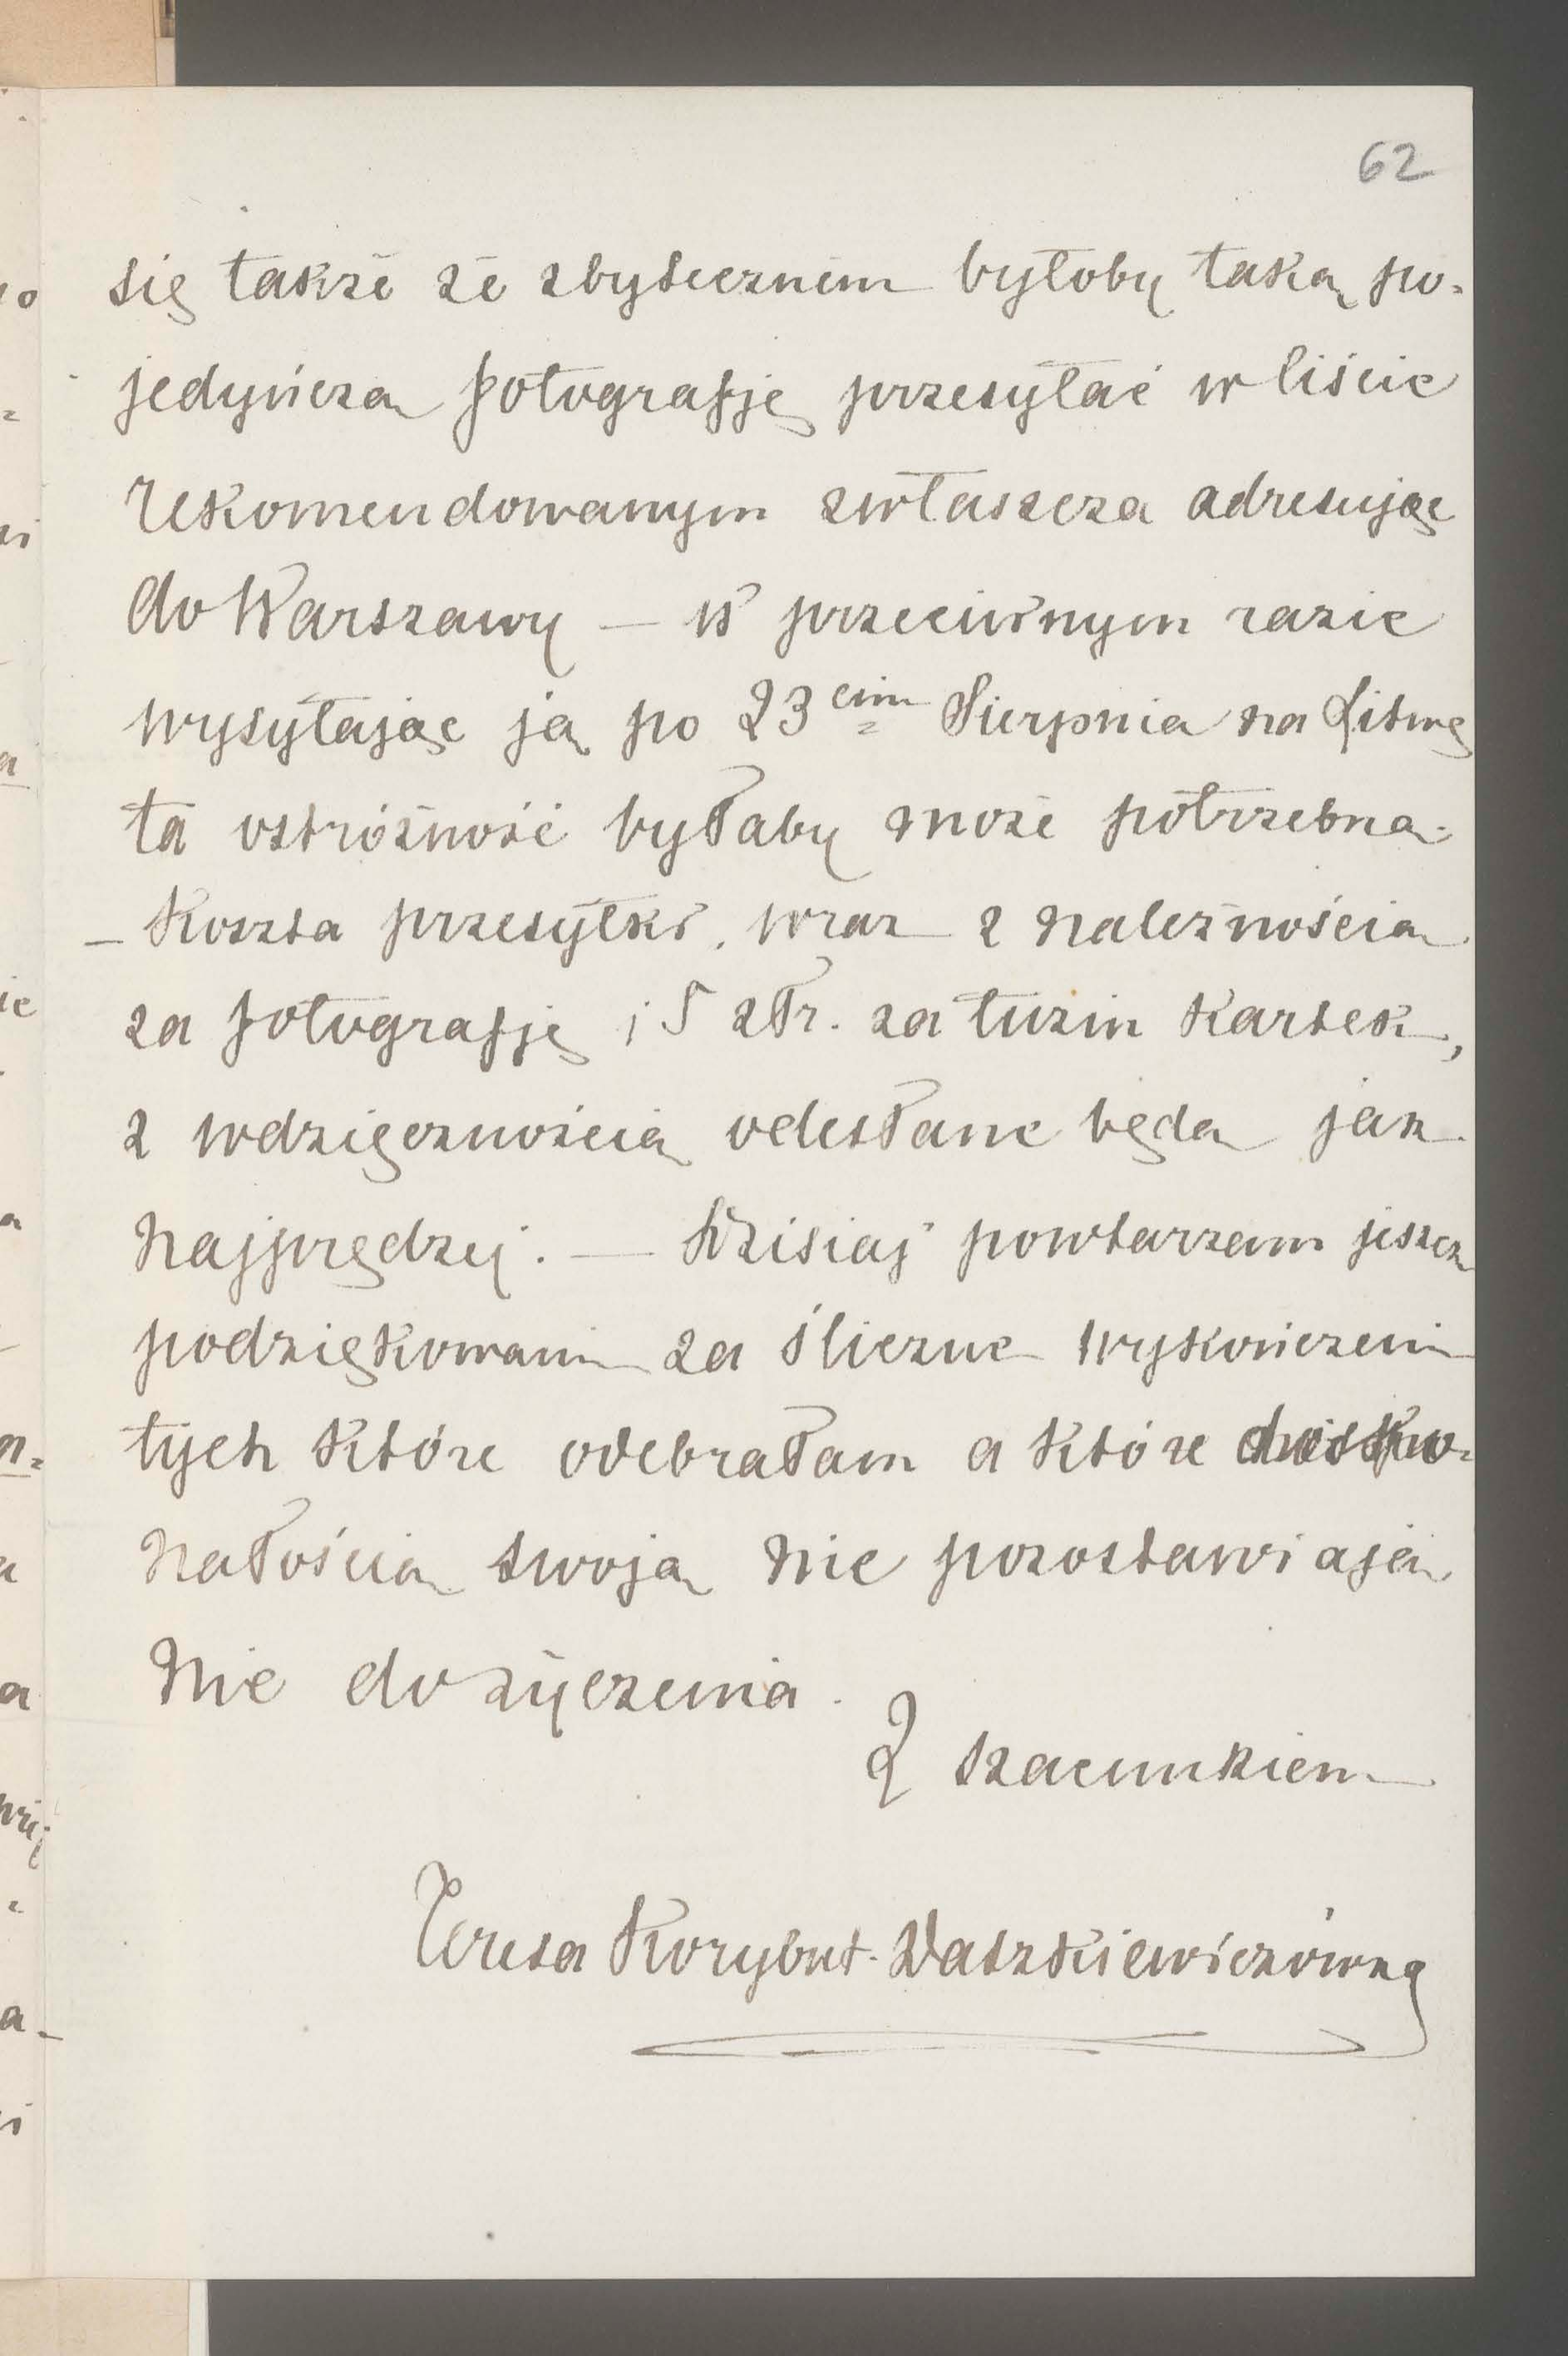 62
się także że zbytecznem byłoby taką po-
jedyńczą fotografję przesyłać w liście
rekomendowanym zwłaszcza adresując
do Warszawy — w przeciwnym razie
wysyłając ją po 23cim Sierpnia na Litwę
ta ostróżność byłaby może potrzebna.
— Koszta przesyłki, wraz z należnością
za fotografję i 5 złr. za tuzin kartek,
z wdzięcznością odesłane będą jak
najprędzej. — Dzisiaj powtarzam jeszcze
podziękowanie za śliczne wykończenie
tych które odebrałam a które dosko-
nałością swoją nie pozostawiają
nic do życzenia.
Z szacunkiem
Teresa Korybut-Daszkiewiczówna